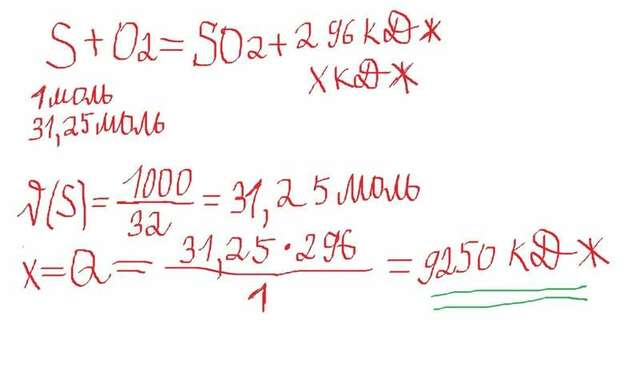 S + O2 = SO2 + 296 кДж
X кДж
1 моль
31,25 моль
ν(S) = 1000/32 = 31,25 моль
x = Q = 31,25 · 296/1 = 9250 кДж